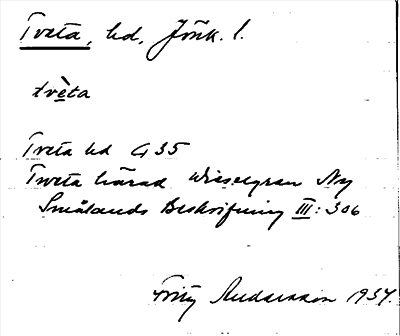 Tveta, hd, Jönk. l.
tvèta
Tveta hd G 35
Tweta härad Wieselgren Ny
Smålands Beskrifning III: 306
Fritz Andersson 1934.